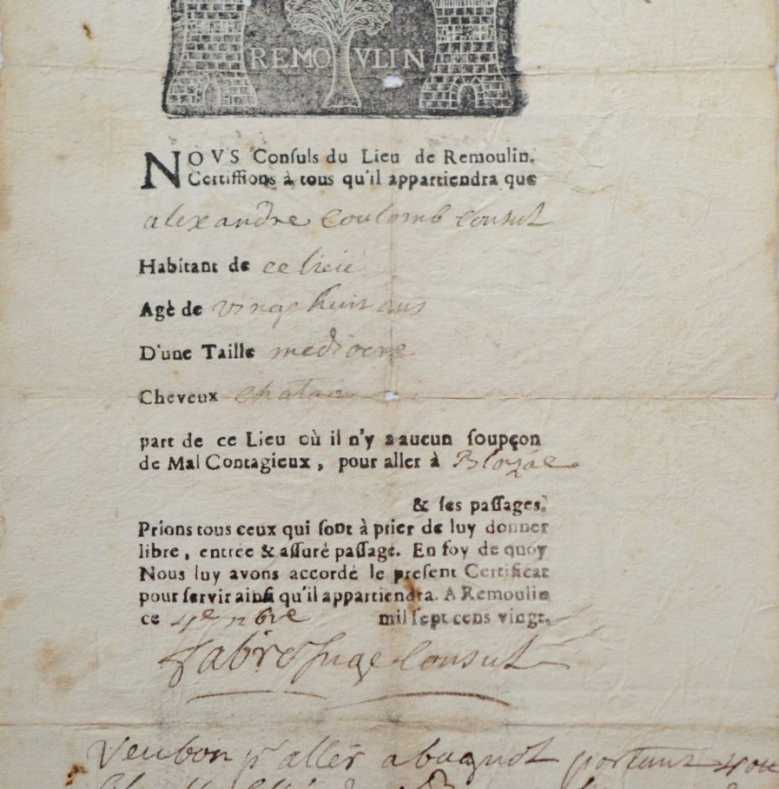 REMOVLIN
NOVS Conſuls du Lieu de Remoulin.
Certiffions à tous qu'il appartiendra que
alexandre Coulomb Consul
Habitant de ce lieu
Agè de vingt huit ans
D'une Taille mediocre
Cheveux chatain
part de ce Lieu où il n'y a aucun ſoupçon
de Mal Contagieux, pour aller à Blozac
& ſes paſſages.
Prions tous ceux qui ſont à prier de luy donner
libre, entrée & aſſuré paſſage. En foy de quoy
Nous luy avons accordé le preſent Certificat
pour ſervir ainſi qu'il appartiendra. A Remoulin
ce 4e nbre mil ſept cens vingt.
Consul
Veu bon pr aller a portant